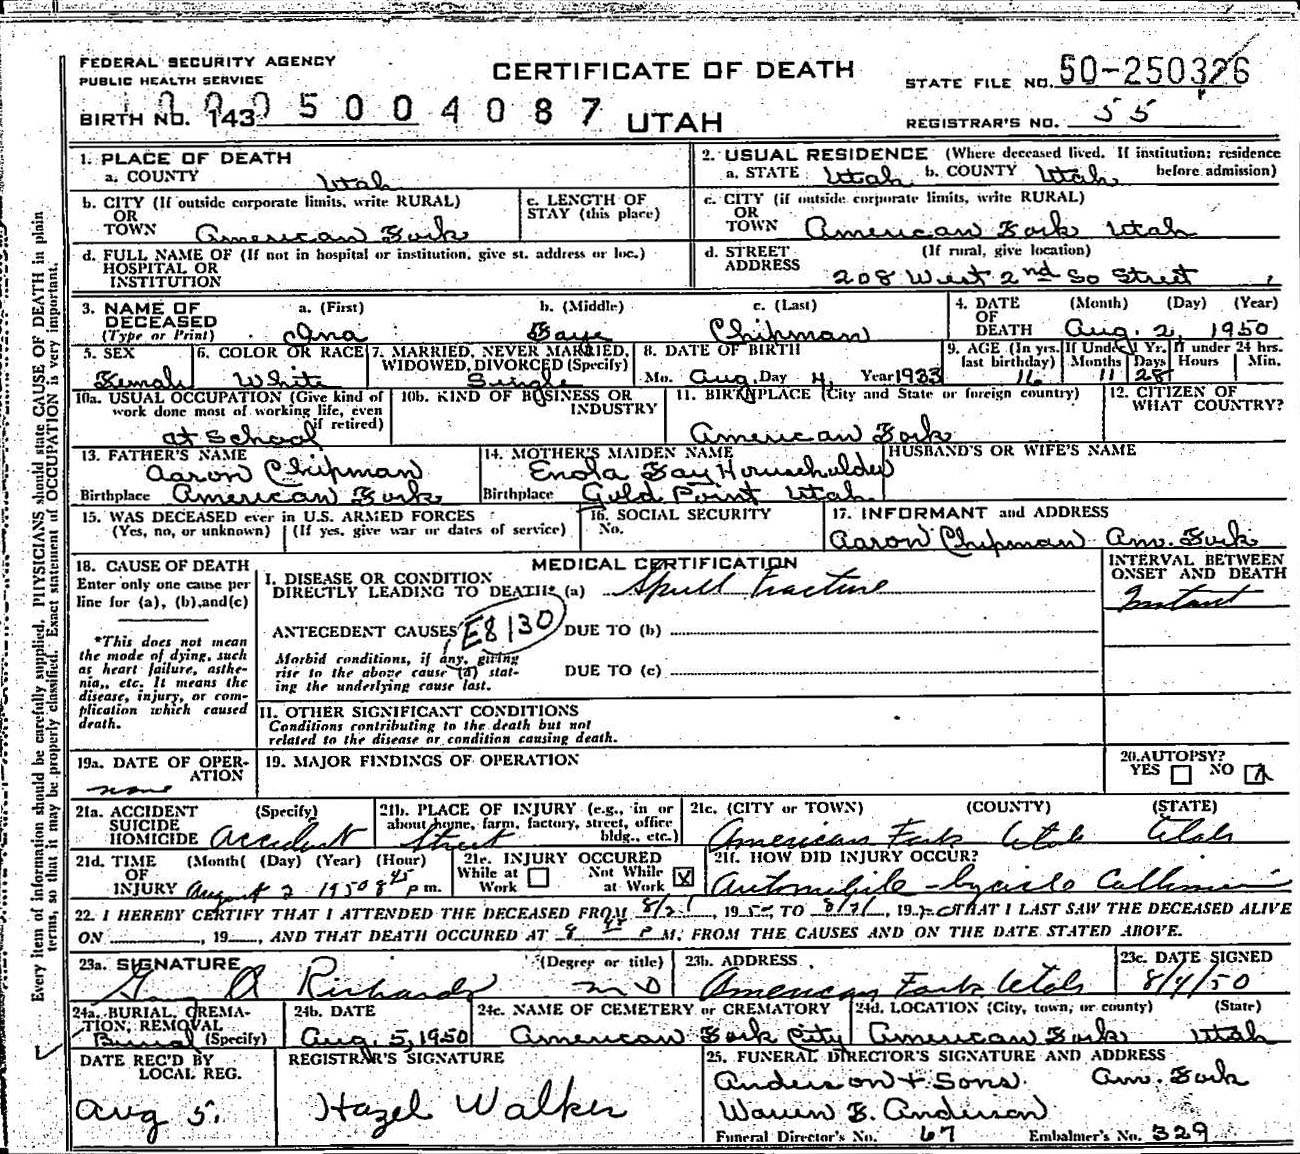 FEDERAL SECURITY AGENCY
PUBLIC HEALTH SERVICE
CERTIFICATE OF DEATH
STATE FILE NO. 50-250326
BIRTH NO. 143 5004087
UTAH
REGISTRAR'S NO. 55
1. PLACE OF DEATH
a. COUNTY Utah
2. USUAL RESIDENCE (Where deceased lived. If institution: residence before admission)
a. STATE Utah b. COUNTY Utah
b. CITY (If outside corporate limits, write RURAL)
OR
TOWN American Fork
c. LENGTH OF
STAY (this place)
c. CITY (if outside corporate limits, write RURAL)
OR
TOWN American Fork Utah
d. FULL NAME OF (If not in hospital or institution, give st. address or loc.)
HOSPITAL OR
INSTITUTION
d. STREET (If rural, give location)
ADDRESS 208 West 2nd So Street
3. NAME OF DECEASED (Type or Print)
a. (First) Ana
b. (Middle) Faye
c. (Last) Chipman
4. DATE OF DEATH (Month) (Day) (Year)
Aug. 2, 1950
5. SEX Female
6. COLOR OR RACE White
7. MARRIED, NEVER MARRIED, WIDOWED, DIVORCED (Specify) Single
8. DATE OF BIRTH
Mo. Aug. Day 4, Year 1933
9. AGE (In yrs. last birthday) 16
If Under 1 Yr. Months 11 Days 28
If under 24 hrs. Hours Min.
10a. USUAL OCCUPATION (Give kind of work done most of working life, even if retired)
at School
10b. KIND OF BUSINESS OR INDUSTRY
11. BIRTHPLACE (City and State or foreign country)
American Fork
12. CITIZEN OF WHAT COUNTRY?
13. FATHER'S NAME
Aaron Chipman
Birthplace American Fork
14. MOTHER'S MAIDEN NAME
Enola Fay Householder
Birthplace Gold Point Utah
HUSBAND'S OR WIFE'S NAME
15. WAS DECEASED ever in U.S. ARMED FORCES
(Yes, no, or unknown) (If yes, give war or dates of service)
16. SOCIAL SECURITY
No.
17. INFORMANT and ADDRESS
Aaron Chipman Am. Fork
18. CAUSE OF DEATH
Enter only one cause per line for (a), (b), and (c)
*This does not mean the mode of dying, such as heart failure, asthenia, etc. It means the disease, injury, or complication which caused death.
MEDICAL CERTIFICATION
I. DISEASE OR CONDITION
DIRECTLY LEADING TO DEATH* (a) Skull Fracture
INTERVAL BETWEEN ONSET AND DEATH
Instant
ANTECEDENT CAUSES E8130 DUE TO (b)
Morbid conditions, if any, giving rise to the above cause (a) stating the underlying cause last.
DUE TO (c)
II. OTHER SIGNIFICANT CONDITIONS
Conditions contributing to the death but not related to the disease or condition causing death.
19a. DATE OF OPERATION
none
19. MAJOR FINDINGS OF OPERATION
20. AUTOPSY?
YES NO
21a. ACCIDENT (Specify)
SUICIDE
HOMICIDE Accident
21b. PLACE OF INJURY (e.g., in or about home, farm, factory, street, office bldg., etc.)
Street
21c. (CITY or TOWN) (COUNTY) (STATE)
American Fork Utah Utah
21d. TIME OF INJURY (Month) (Day) (Year) (Hour)
August 2 1950 8 45 p m.
21e. INJURY OCCURED
While at Work Not While at Work X
21f. HOW DID INJURY OCCUR?
Automobile - bycicle Collision
22. I HEREBY CERTIFY THAT I ATTENDED THE DECEASED FROM 8/2, 1950 TO 8/2, 1950 THAT I LAST SAW THE DECEASED ALIVE
ON , 19 , AND THAT DEATH OCCURED AT 8 45 P M. FROM THE CAUSES AND ON THE DATE STATED ABOVE.
23a. SIGNATURE (Degree or title)
Guy A Richards MD
23b. ADDRESS
American Fork Utah
23c. DATE SIGNED
8/4/50
24a. BURIAL, CREMATION, REMOVAL (Specify)
Burial
24b. DATE
Aug. 5, 1950
24c. NAME OF CEMETERY or CREMATORY
American Fork City
24d. LOCATION (City, town, or county) (State)
American Fork Utah
DATE REC'D BY LOCAL REG.
Aug 5.
REGISTRAR'S SIGNATURE
Hazel Walker
25. FUNERAL DIRECTOR'S SIGNATURE AND ADDRESS
Anderson & Sons. Am. Fork
Warren B. Anderson
Funeral Director's No. 67 Embalmer's No. 329
Every item of information should be carefully supplied. PHYSICIANS should state CAUSE OF DEATH in plain
terms, so that it may be properly classified. Exact statement of OCCUPATION is very important.